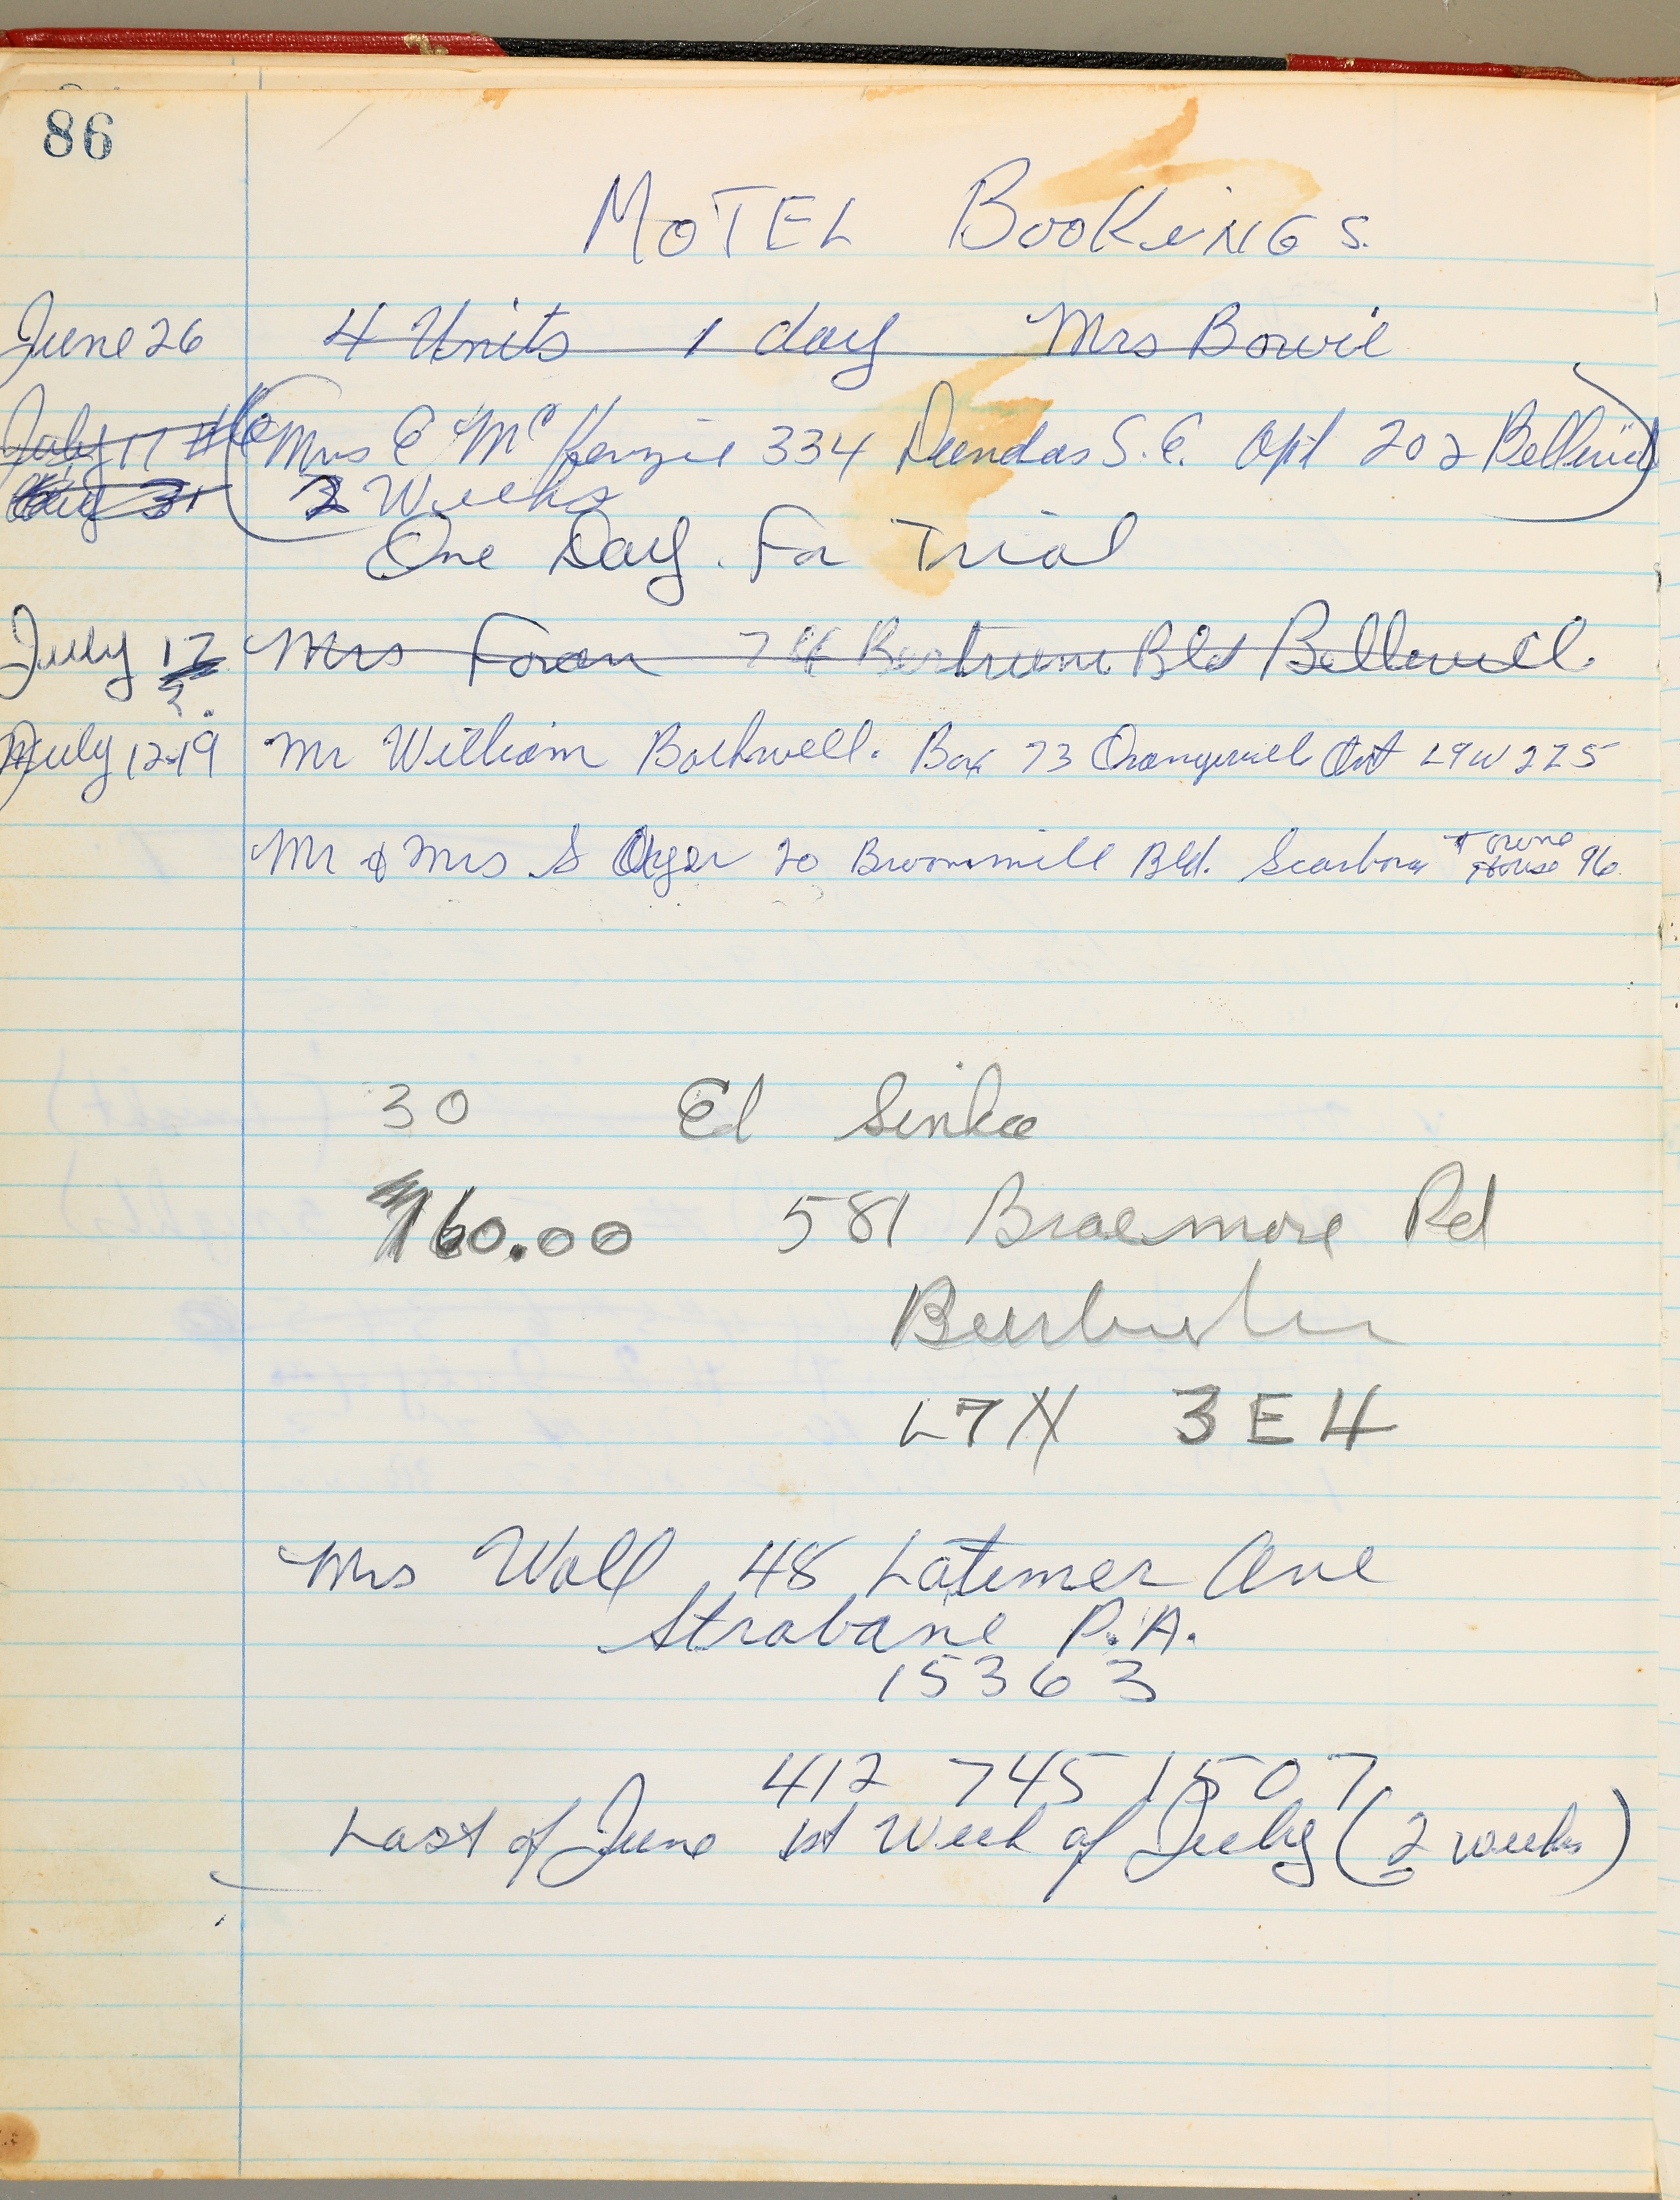 86
MOTEL BOOKiNGS.
June 26 4 Units 1 day Mrs Bowie
July 17 Mrs E McKenzie 334 Dundas S.E. Apt 202 Belleville
Aug 31 2 Weeks
One Day For Trial
July 12 Mrs Foran 74 Bertrum Bld Belleville
?
July 12-19 Mr William Bothwell. Box 73 Orangeville Ont L9W 2Z5
Mr & Mrs S 20 Broommill Bld. Scarboro Towne House 96
30 Ed Sinke
160.00 581 Braemore Rd
L7N 3E4
Mrs Wall 48 Latimer Ave
Strabane P.A.
15363
412 745 1507
Last of June 1st Week of July (2 weeks)